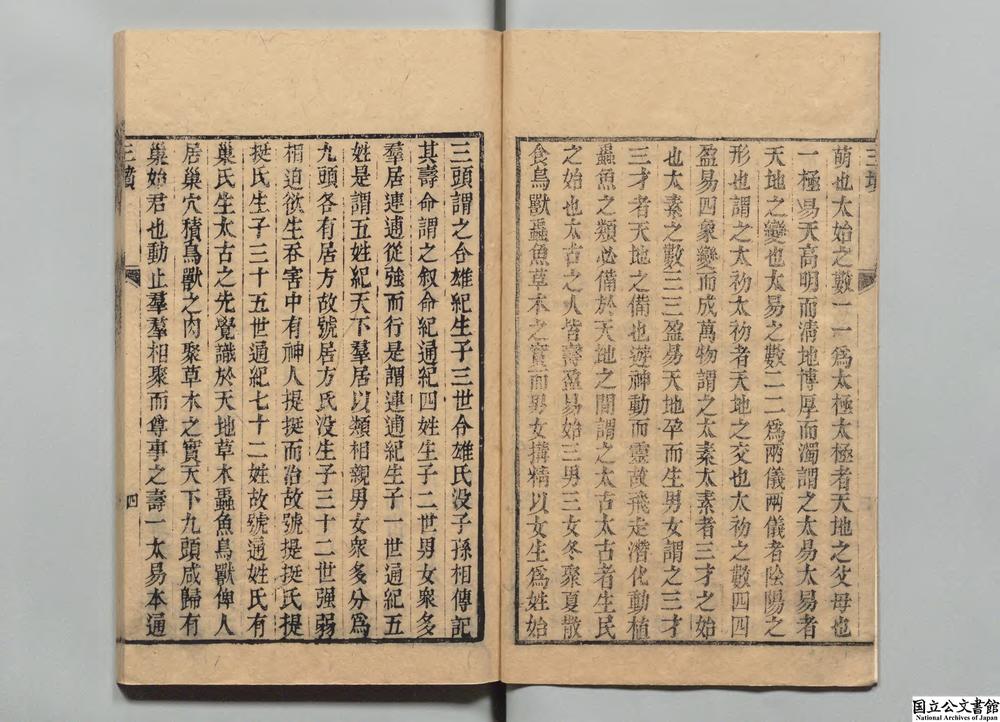 萌也太始之數一一爲太極太極者天地之父母也
一極易天高明而清地博厚而濁謂之太易太易者
天地之變也太易之數二二爲兩儀兩儀者陰陽之
形也謂之太初太初者天地之交也太初之數四四
盈易四象變而成萬物謂之太素太素者三才之始
也太素之數三三盈易天地孕而生男女謂之三才
三才者天地之備也遊神動而靈故飛走潛化動植
蟲魚之類必備於天地之間謂之太古太古者生民
之始也太古之人皆壽盈易始三男三女冬聚夏散
食鳥獸蟲魚草木之實而男女搆精以女生爲姓始
三頭謂之合雄紀生子三世合雄氏没子孫相傳記
其壽命謂之叙命紀通紀四姓生子二世男女衆多
羣居連逋從強而行是謂連逋紀生子一世通紀五
姓是謂五姓紀天下羣居以類相親男女衆多分爲
九頭各有居方故號居方氏没生子三十二世强弱
相迫欲生吞害中有神人提挺而治故號提挺氏提
挺氏生子三十五世通紀七十二姓故號通姓氏有
巢氏生太古之先覺識於天地草木蟲魚鳥獸俾人
居巢穴積鳥獸之肉聚草木之實天下九頭咸歸有
巢始君也動止羣羣相聚而尊事之壽一太易本通
三墳
四
国立公文書館
National Archives of Japan